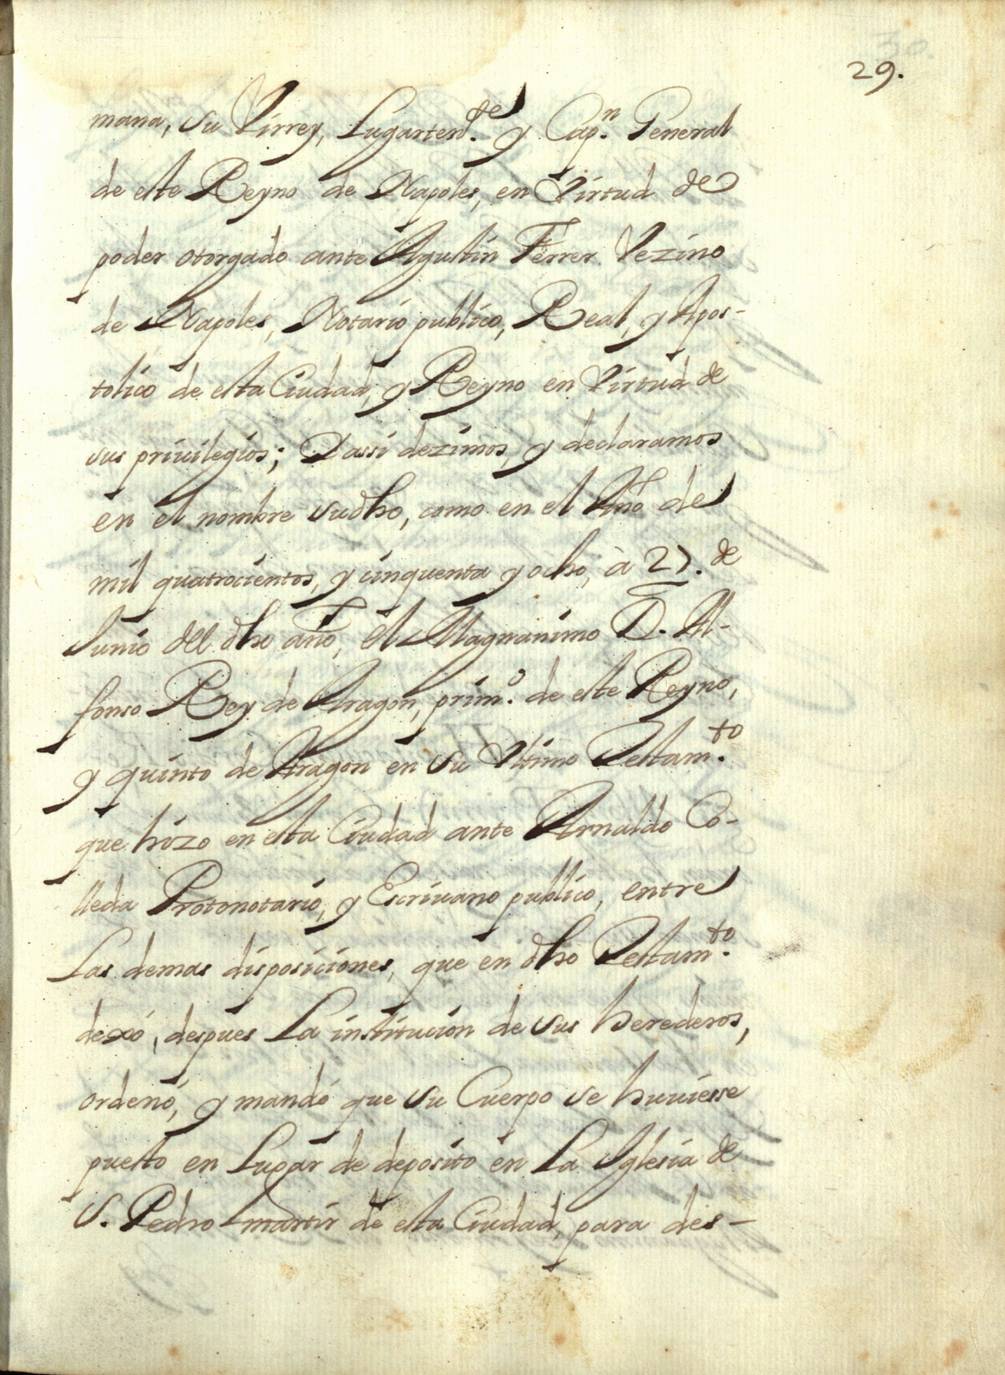 30.
29.
mana, su Virrey, Lugarten.te y Cap.n General
de este Reyno de Napoles, en Virtud de
poder otorgado ante Agustin Ferrer Vezino
de Napoles, Notario publico, Real, y Apos-
tolico de esta Ciudad, y Reyno en Virtud de
sus priuilegios; Dassi dezimos, y declaramos
en el nombre sudho, como en el Año de
mil quatrocientos, y cinquenta y ocho, à 27. de
Junio del dho año, el Magnanimo D. Al-
fonso Rey de Aragon, prim.o de este Reyno,
y quinto de Aragon en su Vltimo Testam.to
que hizo en esta Ciudad ante Arnaldo Co-
lleda Protonotario, y Escriuano publico, entre
Las demas disposiciones, que en dho Testam.to
dexó, despues La institucion de sus herederos,
ordenó, y mandó que su Cuerpo se huuiesse
puesto en Lugar de deposito en La Iglesia de
S. Pedro martir de esta Ciudad, para des-